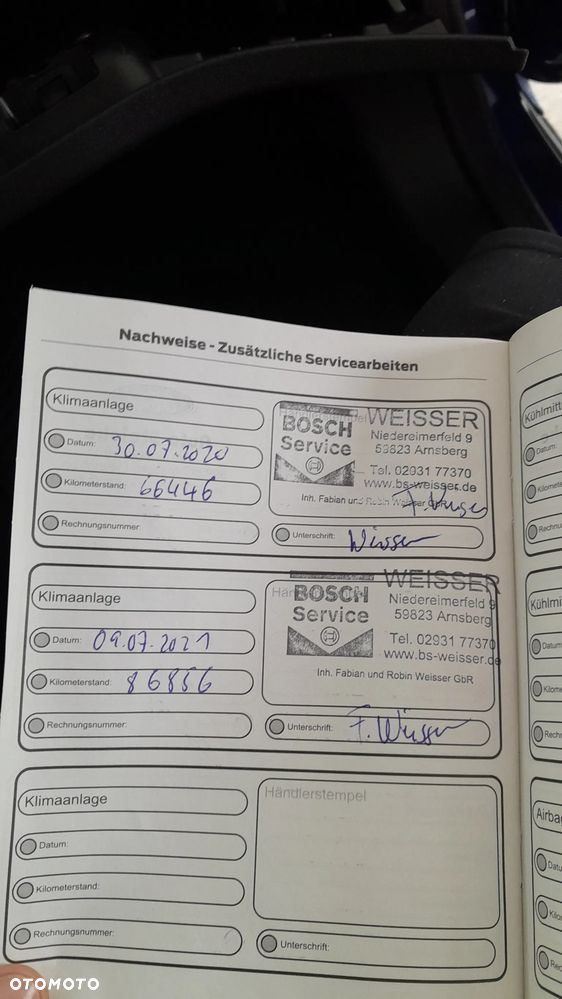 Nachweise - Zusätzliche Servicearbeiten
Klimaanlage
Datum: 30.07.2020
Kilometerstand: 66446
Rechnungsnummer:
BOSCH
Service
WEISSER
Niedereimerfeld 9
59823 Arnsberg
Tel. 02931 77370
www.bs-weisser.de
Inh. Fabian und Robin Weisser GbR
Unterschrift: Weisser
Klimaanlage
Datum: 09.07.2021
Kilometerstand: 86856
Rechnungsnummer:
BOSCH
Service
WEISSER
Niedereimerfeld 9
59823 Arnsberg
Tel. 02931 77370
www.bs-weisser.de
Inh. Fabian und Robin Weisser GbR
Unterschrift: F. Weisser
Klimaanlage
Datum:
Kilometerstand:
Rechnungsnummer:
Händlerstempel
Unterschrift:
Kühlmitt
Datum:
Kilomete
Rechnu
Kühlmi
Datum
Kilome
Rech
Airba
Datu
Kilo
Rec
OTOMOTO